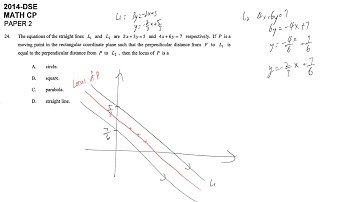 2014-DSE
MATH CP
PAPER 2
24. The equations of the straight lines L₁ and L₂ are 2x + 3y = 5 and 4x + 6y = 7 respectively. If P is a
moving point in the rectangular coordinate plane such that the perpendicular distance from P to L₁ is
equal to the perpendicular distance from P to L₂ , then the locus of P is a
A. circle.
B. square.
C. parabola.
D. straight line.
6y = -4x + 7
Locus of P
5/3
7/6
L₁